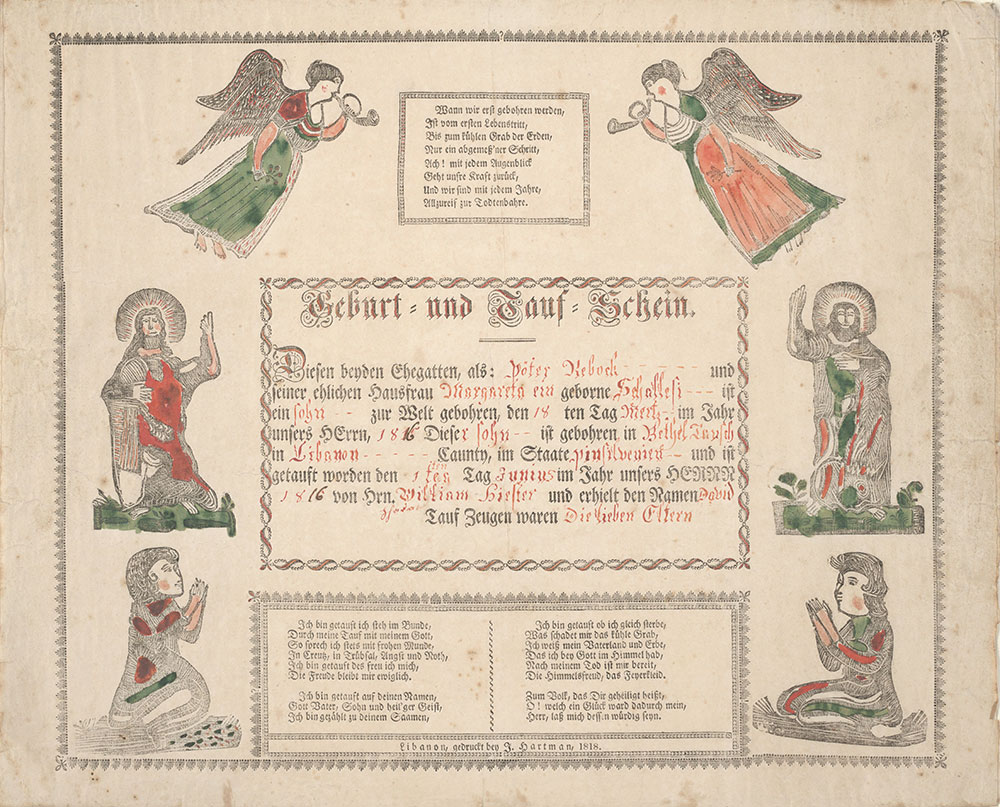 Wann wir erst gebohren werden,
Ist vom ersten Lebenstritt,
Bis zum kühlen Grab der Erden,
Nur ein abgemeß'ner Schritt,
Ach! mit jedem Augenblick
Geht unsre Kraft zurück,
Und wir sind mit jedem Jahre,
Allzureif zur Todtenbahre.
Geburt- und Tauf-Schein.
Diesen beyden Ehegatten, als: Peter Rebock und
seiner ehlichen Hausfrau Margareta ein geborne ist
ein sohn zur Welt gebohren, den 18 ten Tag Mertz im Jahr
unsers HErrn, 1816 Dieser sohn ist gebohren in Bethel Taupsch
in Libanon Caunty, im Staate pinsilvenien und ist
getauft worden den 1 ten Tag Junius im Jahr unsers HERRN
1816 von Hrn. William Hiester und erhielt den Namen David
Tauf Zeugen waren Die lieben Eltern
Ich bin getauft ich steh im Bunde,
Durch meine Tauf mit meinem Gott,
So sprech ich stets mit frohen Munde,
In Creutz, in Trübsal, Angst und Noth,
Ich bin getauft des freu ich mich,
Die Freude bleibt mir ewiglich.
Ich bin getauft auf deinen Namen,
Gott Vater, Sohn und heil'ger Geist,
Ich bin gezählt zu deinem Saamen,
Ich bin getauft ob ich gleich sterbe,
Was schadet mir das kühle Grab,
Ich weiß mein Vaterland und Erbe,
Das ich bey Gott im Himmel hab,
Nach meinem Tod ist mir bereit,
Die Himmelsfreud, das Feyerkleid.
Zum Volk, das Dir geheiligt heißt,
O! welch ein Glück ward dadurch mein,
Herr, laß mich dessen würdig seyn.
Libanon, gedruckt bey J. Hartman, 1818.